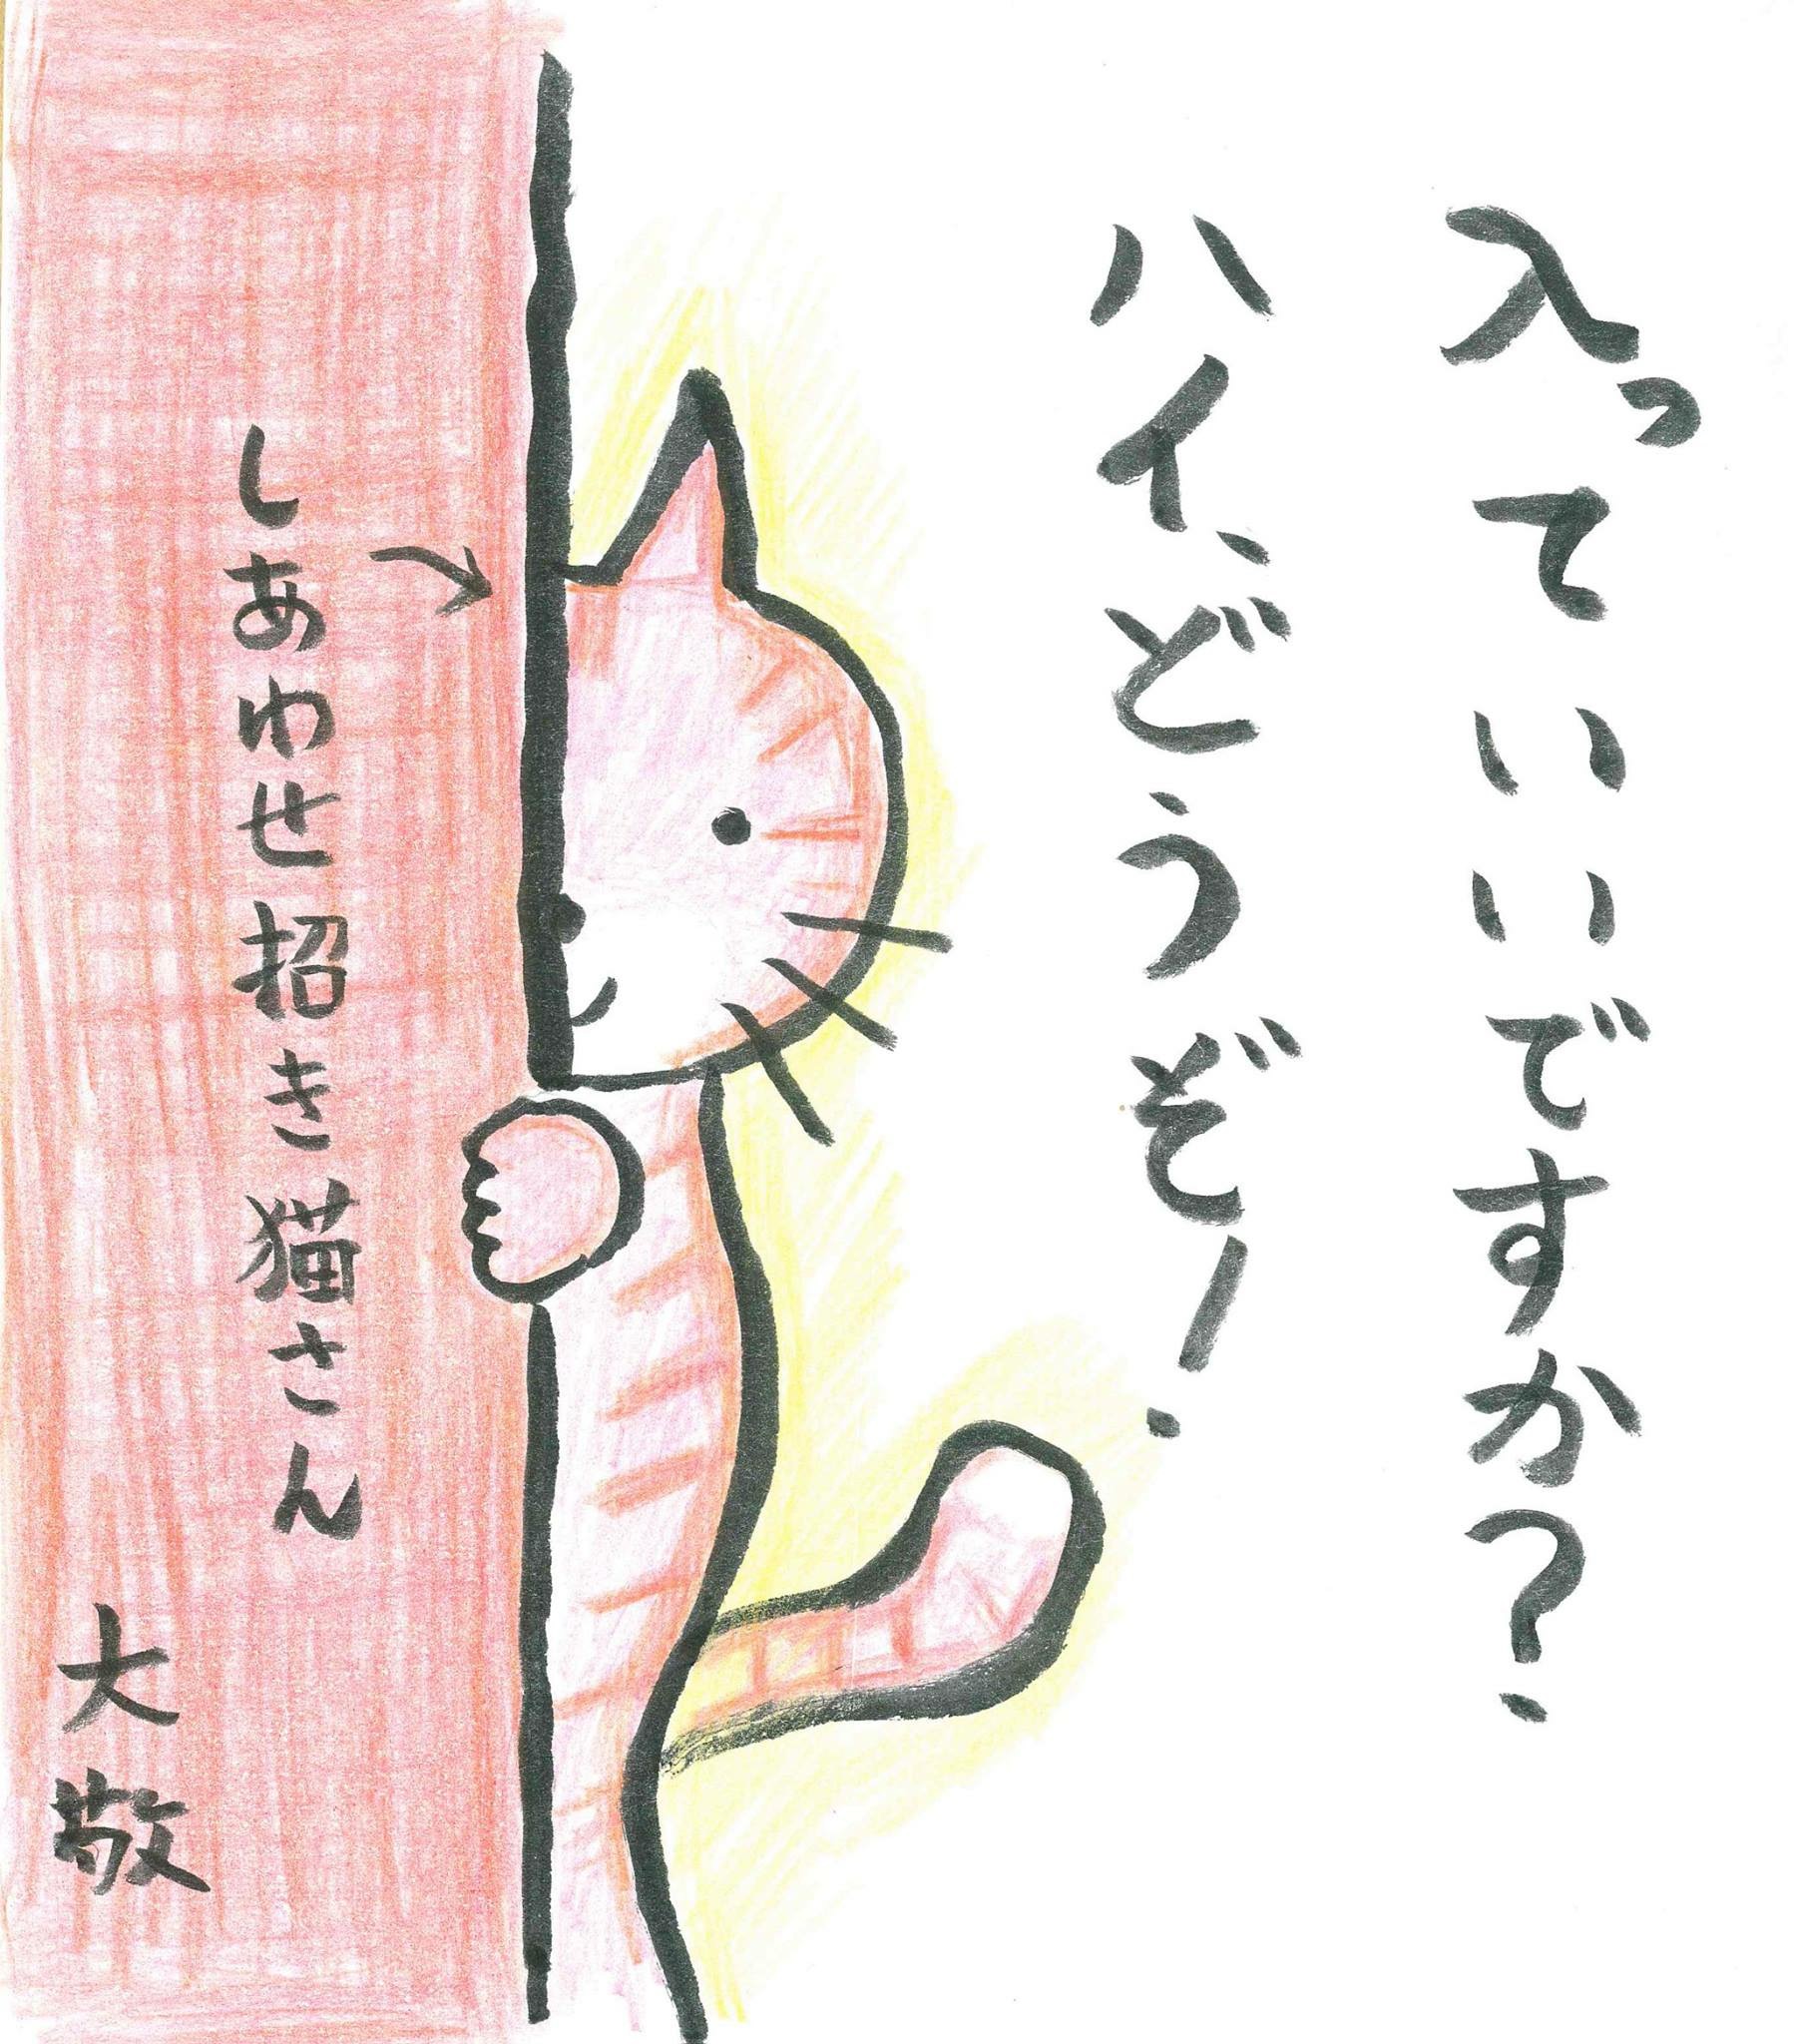 入っていいですか?
ハイ、どうぞ!
しあわせ招き猫さん
大敬